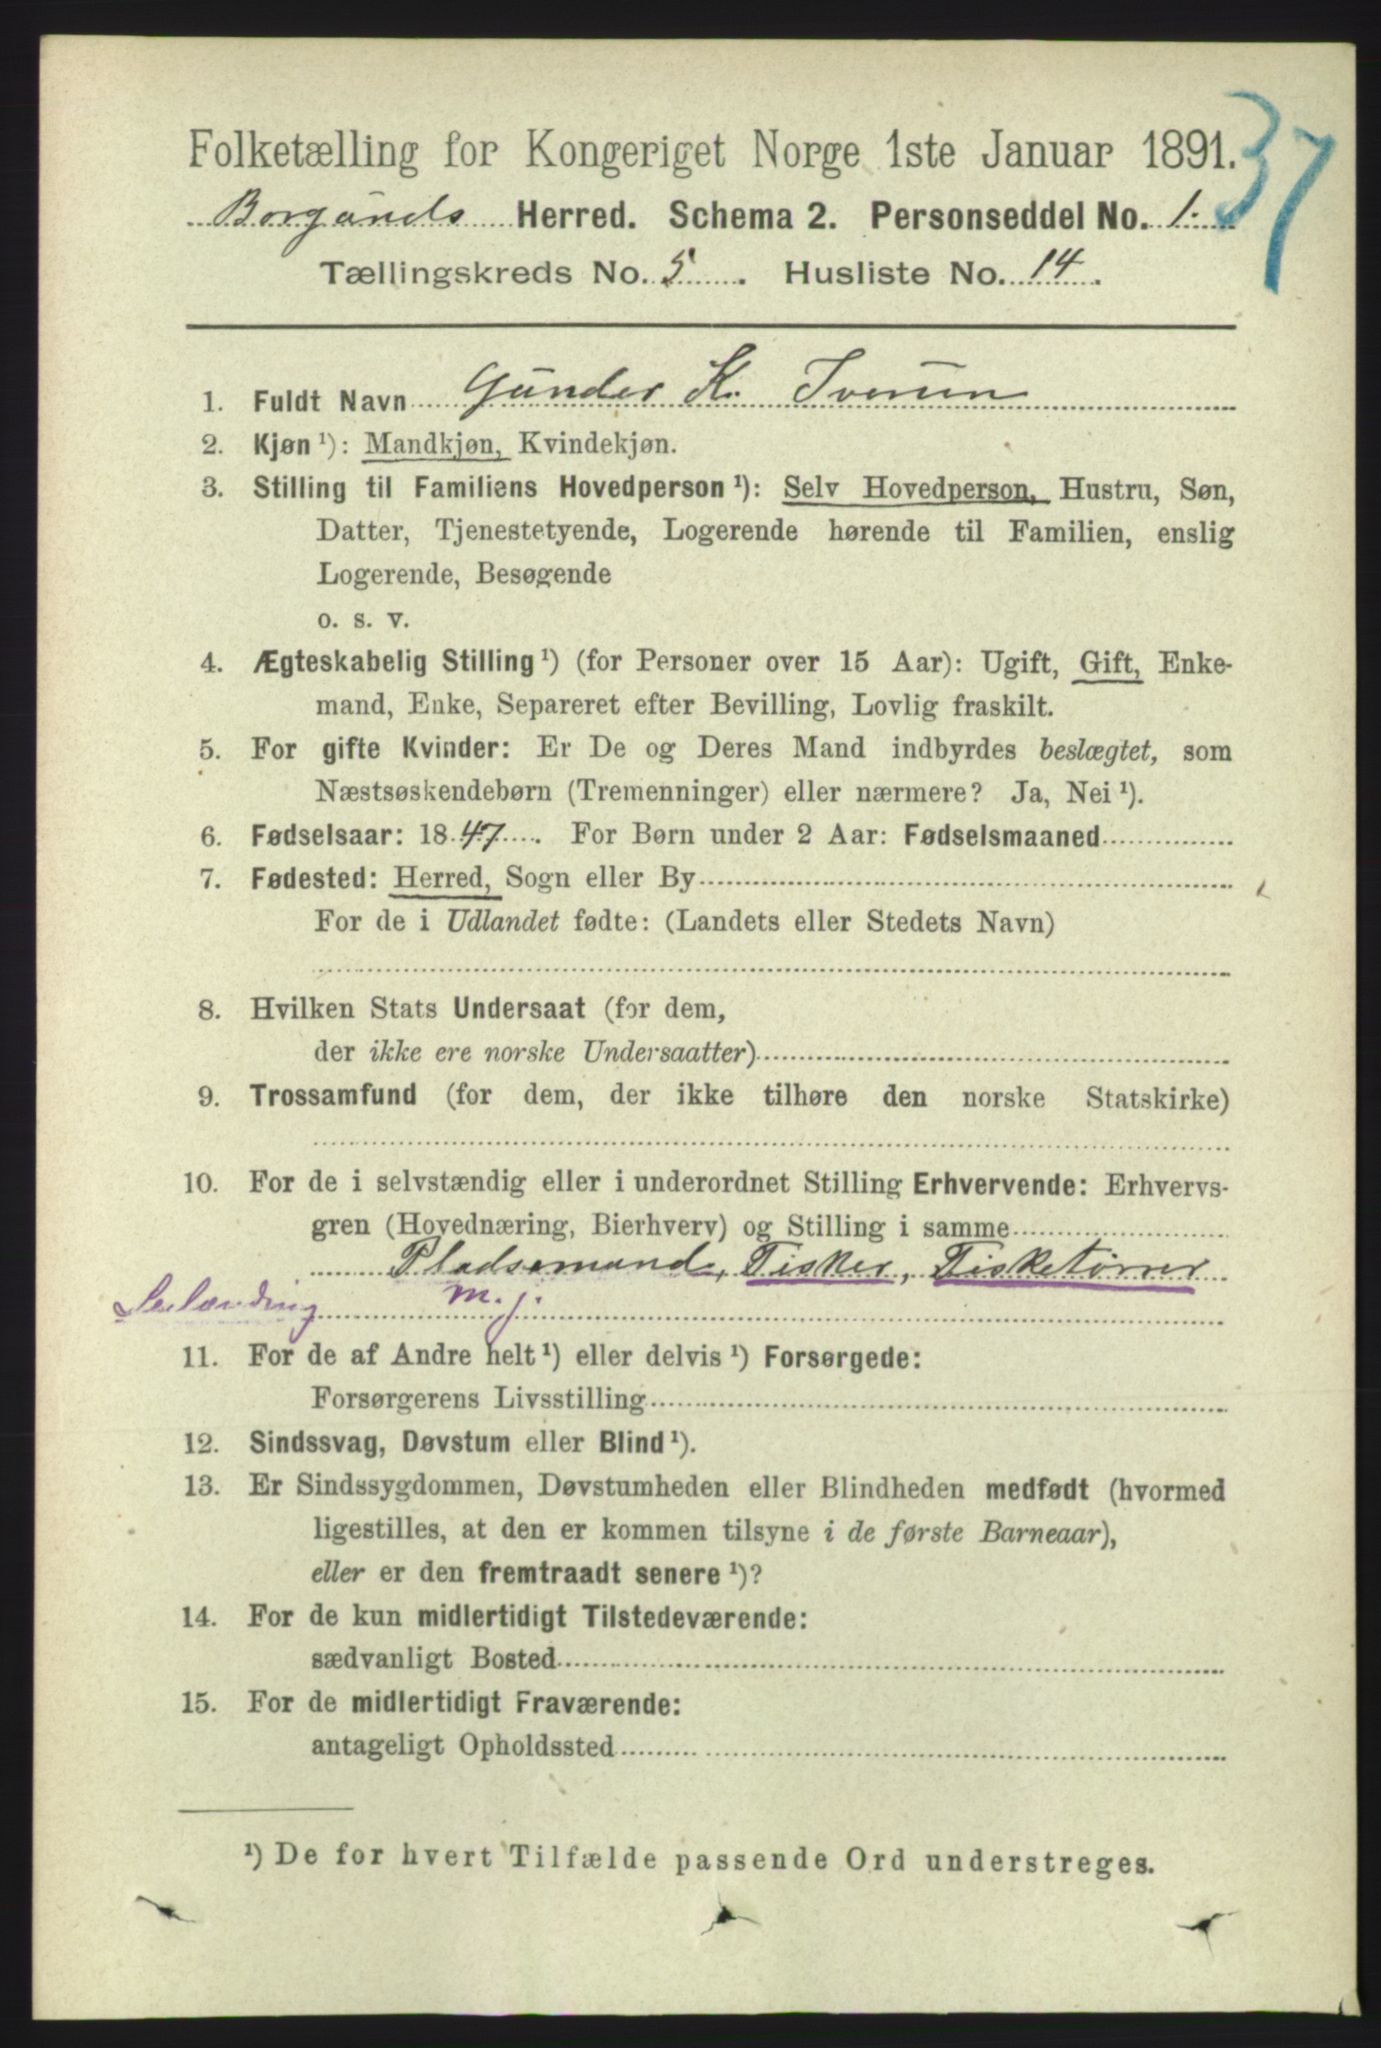 Folketælling for Kongeriget Norge 1ste Januar 1891.
37
Borgunds Herred. Schema 2. Personseddel No. 1.
Tællingskreds No. 5. Husliste No. 14.
1. Fuldt Navn Gunder K.
2. Kjøn ¹): Mandkjøn, Kvindekjøn.
3. Stilling til Familiens Hovedperson ¹): Selv Hovedperson, Hustru, Søn,
Datter, Tjenestetyende, Logerende hørende til Familien, enslig
Logerende, Besøgende
o. s. v.
4. Ægteskabelig Stilling ¹) (for Personer over 15 Aar): Ugift, Gift, Enke-
mand, Enke, Separeret efter Bevilling, Lovlig fraskilt.
5. For gifte Kvinder: Er De og Deres Mand indbyrdes beslægtet, som
Næstsøskendebørn (Tremenninger) eller nærmere? Ja, Nei ¹).
6. Fødselsaar: 1847. For Børn under 2 Aar: Fødselsmaaned
7. Fødested: Herred, Sogn eller By
For de i Udlandet fødte: (Landets eller Stedets Navn)
8. Hvilken Stats Undersaat (for dem,
der ikke ere norske Undersaatter)
9. Trossamfund (for dem, der ikke tilhøre den norske Statskirke)
10. For de i selvstændig eller i underordnet Stilling Erhvervende: Erhvervs-
gren (Hovednæring, Bierhverv) og Stilling i samme
Pladsemand, Fisker, Fisketørrer
m. j.
11. For de af Andre helt ¹) eller delvis ¹) Forsørgede:
Forsørgerens Livsstilling
12. Sindssvag, Døvstum eller Blind ¹).
13. Er Sindssygdommen, Døvstumheden eller Blindheden medfødt (hvormed
ligestilles, at den er kommen tilsyne i de første Barneaar),
eller er den fremtraadt senere ¹)?
14. For de kun midlertidigt Tilstedeværende:
sædvanligt Bosted
15. For de midlertidigt Fraværende:
antageligt Opholdssted
¹) De for hvert Tilfælde passende Ord understreges.